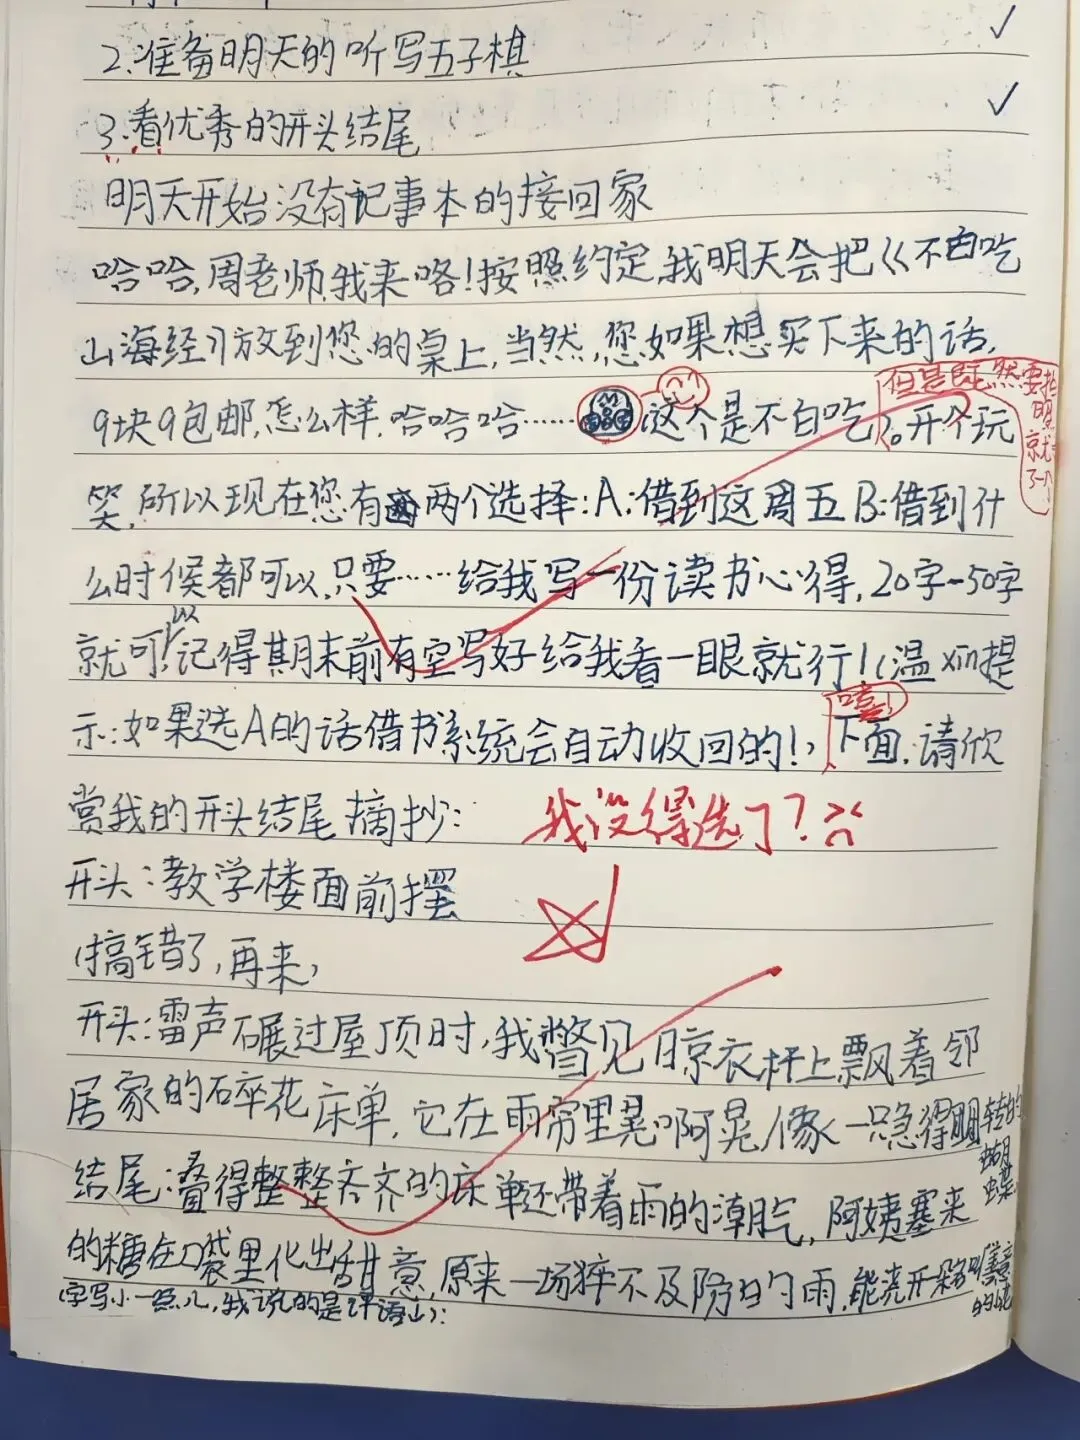 2.准备明天的听写五子棋
3.看优秀的开头结尾
明天开始没有记事本的接回家
哈哈,周老师,我来咯!按照约定,我明天会把《不白吃
山海经》放到您的桌上,当然,您如果想买下来的话,
9块9包邮,怎么样,哈哈哈……这个是不白吃。开个玩
但是既然要
就
笑,所以现在您有两个选择:A:借到这周五B:借到什
么时候都可以,只要……给我写一份读书心得,20字-50字
就可以!记得期末前有空写好给我看一眼就行!(温xin提
示:如果选A的话借书系统会自动收回的!)下面,请欣
嘻!
赏我的开头结尾摘抄:
我没得选了?
开头:教学楼面前摆
(搞错了,再来)
开头:雷声碾过屋顶时,我瞥见晾衣杆上飘着邻
居家的碎花床单,它在雨帘里晃啊晃,像一只急得团团转的蝴蝶
结尾:叠得整整齐齐的床单还带着雨的潮气,阿姨塞来
的糖在口袋里化出甜意,原来一场猝不及防的雨,能浇开善意的花
(字写小一点儿,我说的是评语山):